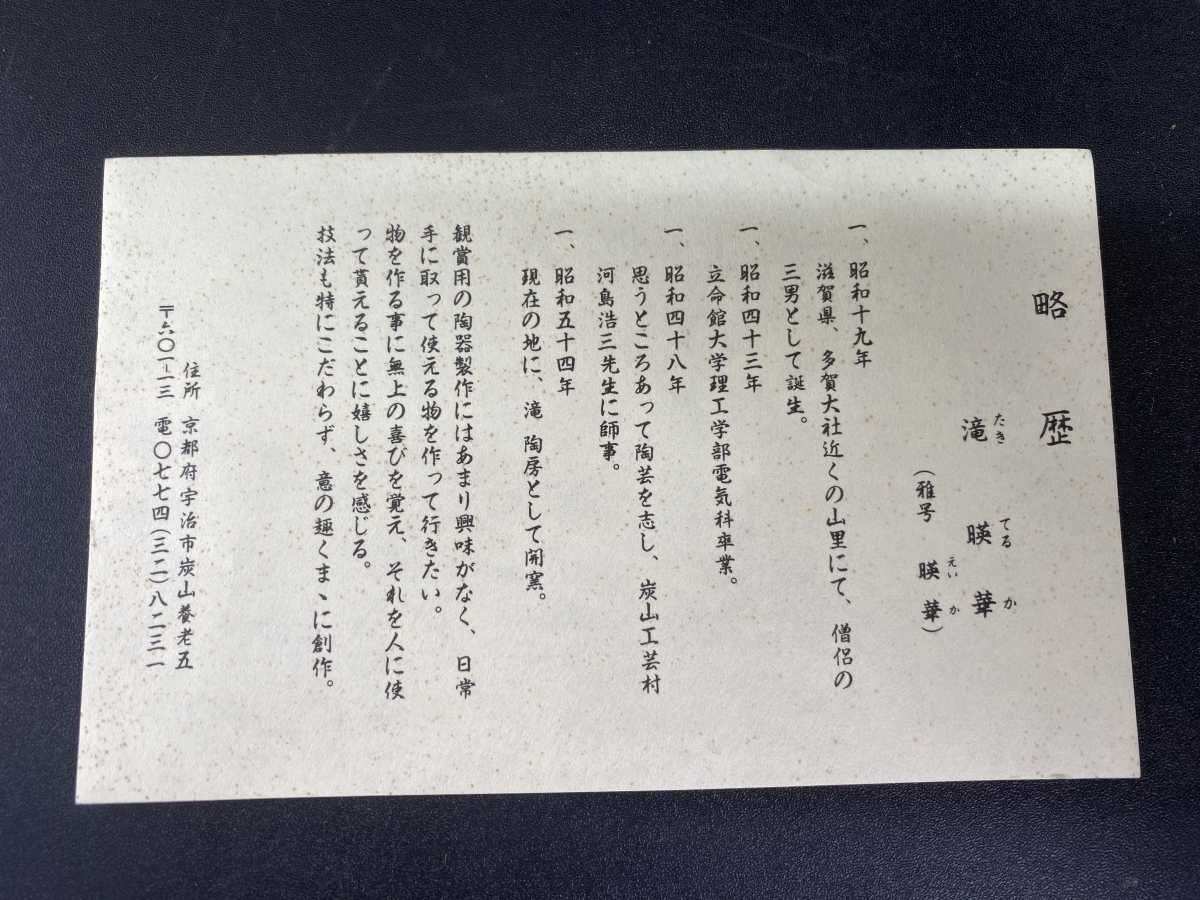 略歴
滝 暎華
たき てるか
(雅号 暎華)
えいか
一、昭和十九年
滋賀県、多賀大社近くの山里にて、僧侶の
三男として誕生。
一、昭和四十三年
立命館大学理工学部電気科卒業。
一、昭和四十八年
思うところあって陶芸を志し、炭山工芸村
河島浩三先生に師事。
一、昭和五十四年
現在の地に、滝 陶房として開窯。
観賞用の陶器製作にはあまり興味がなく、日常
手に取って使える物を作って行きたい。
物を作る事に無上の喜びを覚え、それを人に使
って貰えることに嬉しさを感じる。
技法も特にこだわらず、意の趣くまゝに創作。
住所 京都府宇治市炭山養老五
〒六〇一-一三 電〇七七四(三二)八二三一